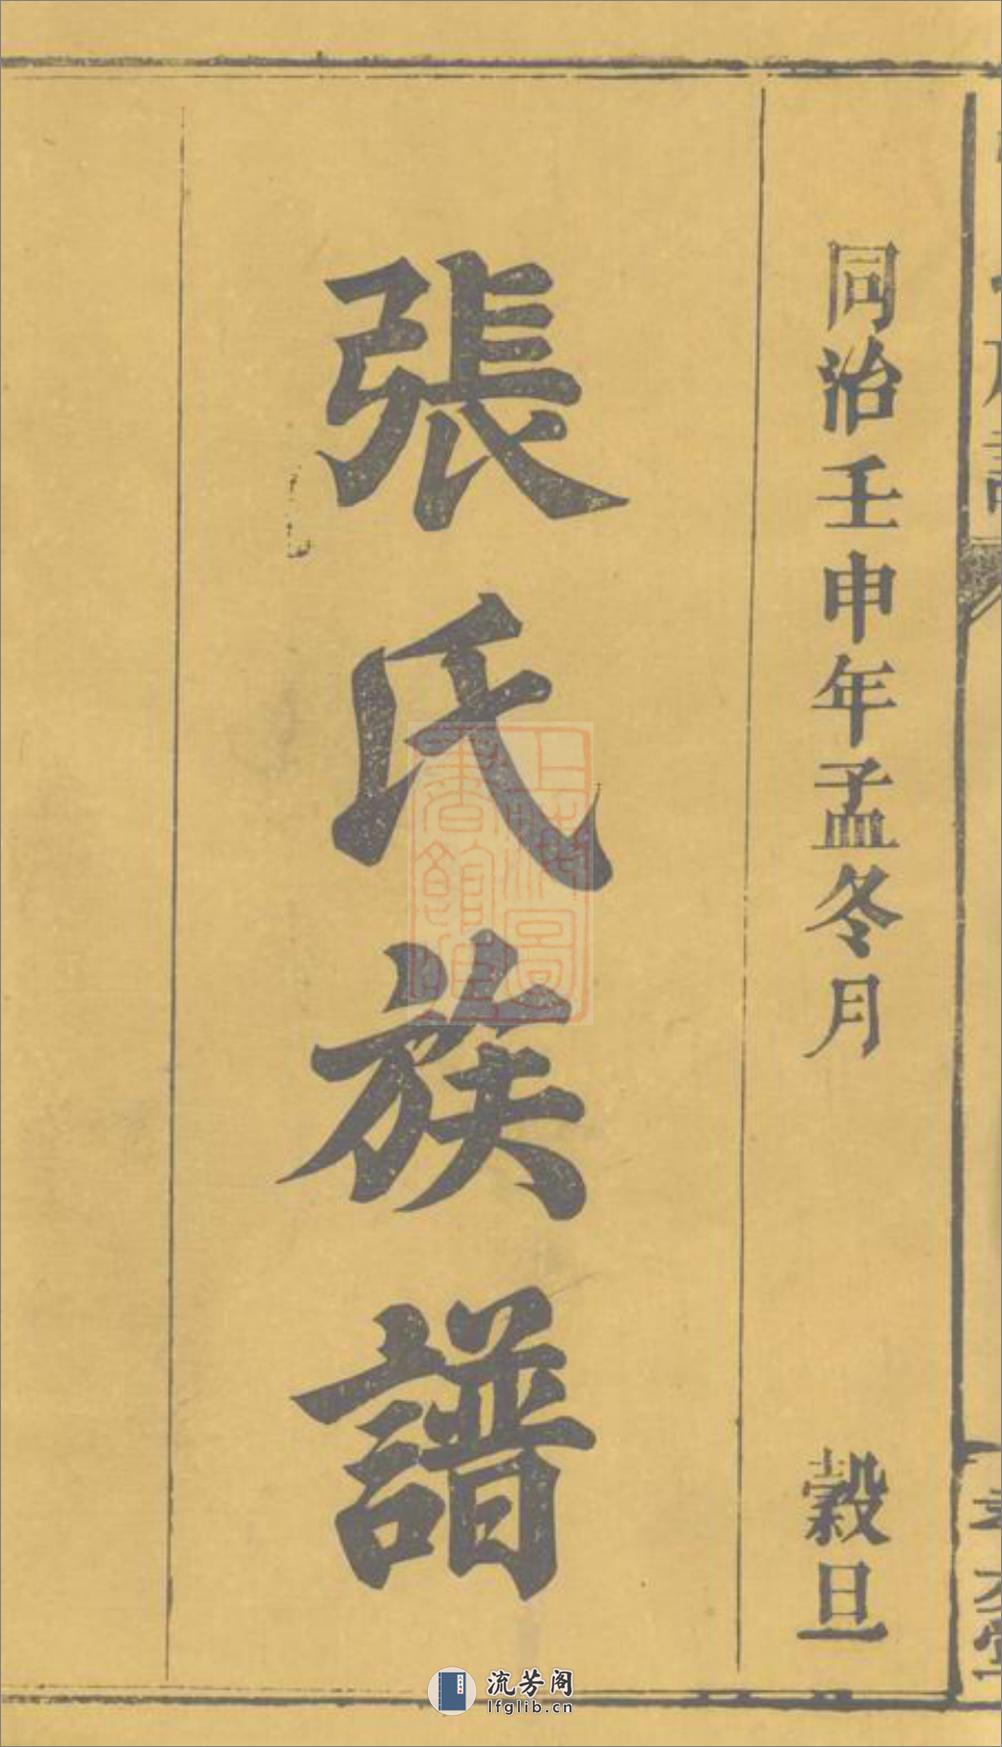 同治壬申年孟冬月 穀旦
張氏族譜
上海圖書館
流芳阁
lfglib.cn